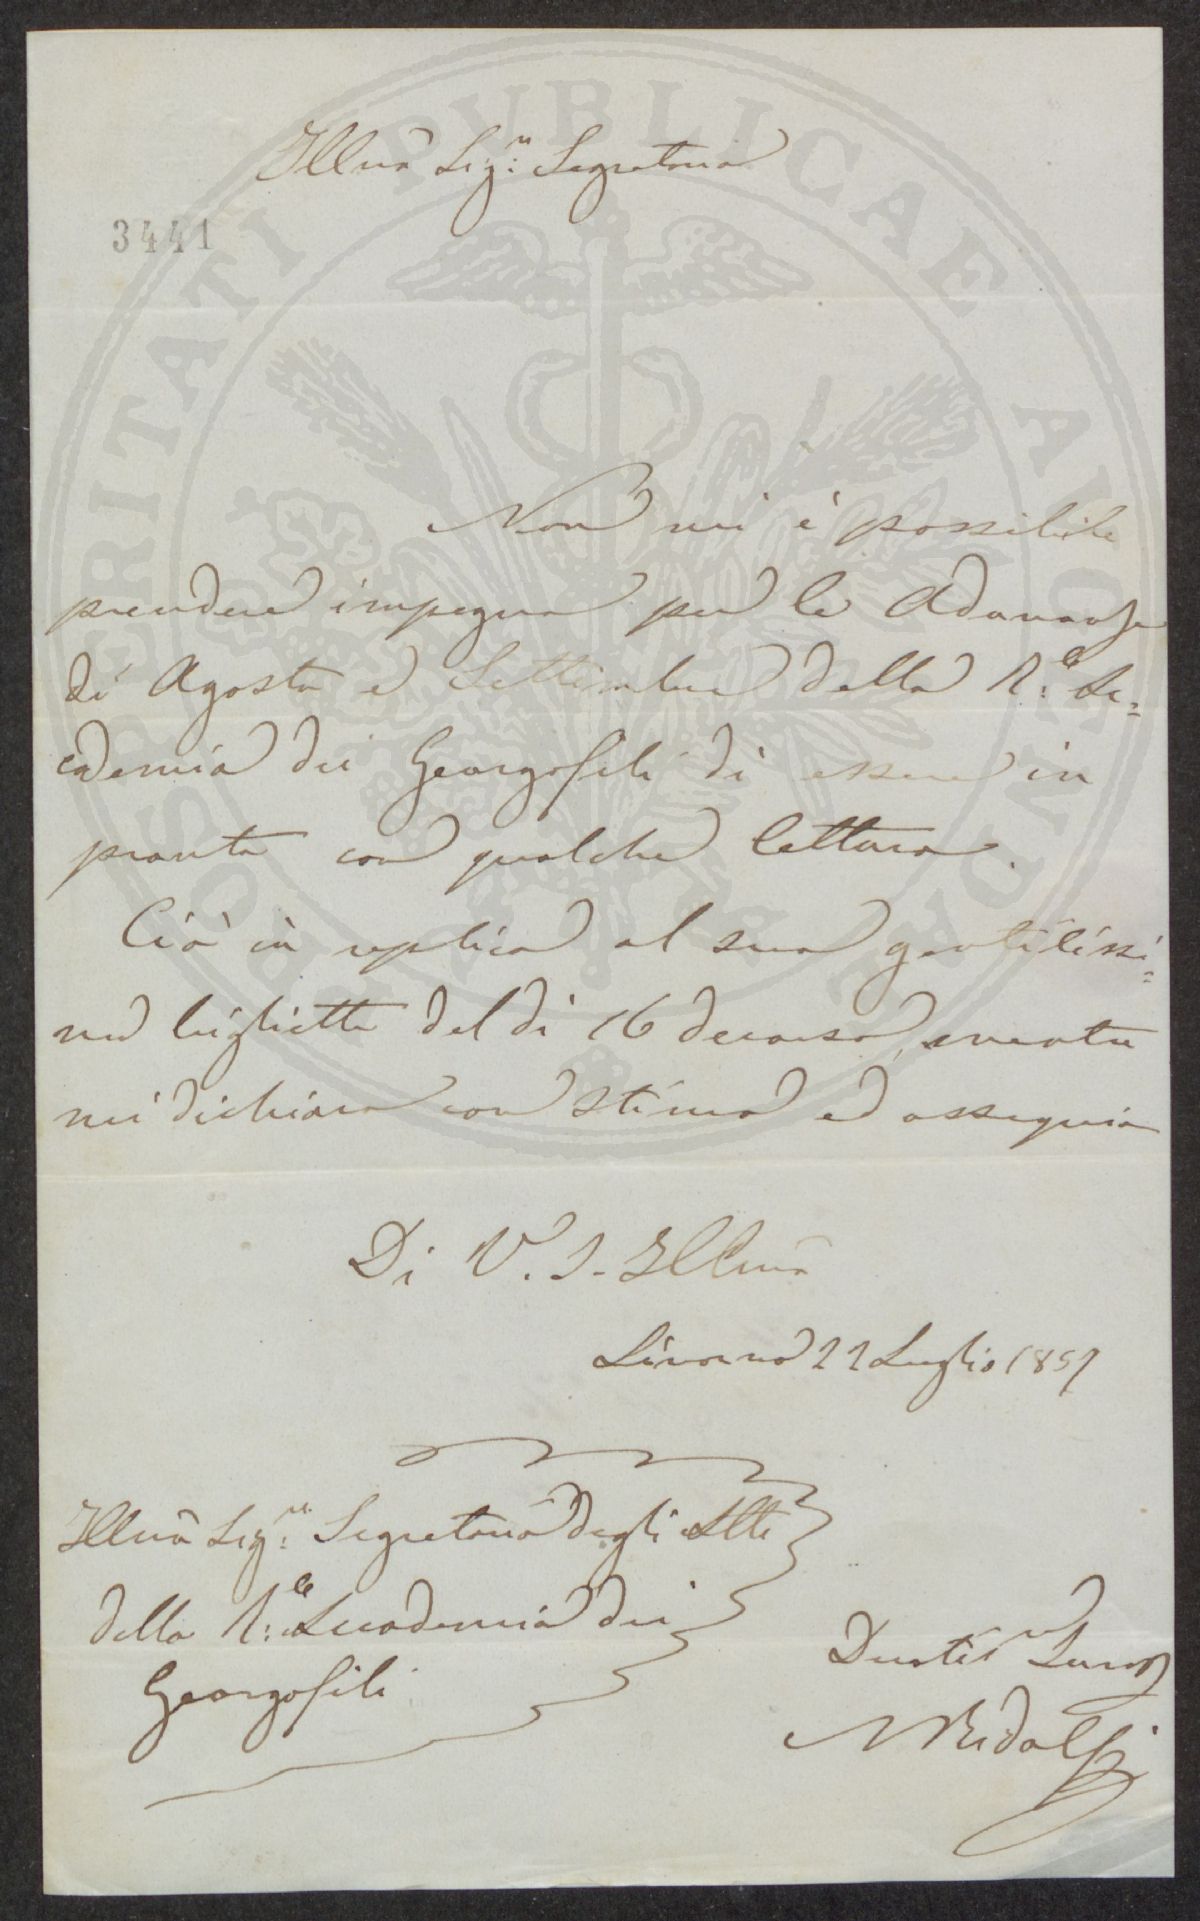 Illmo Sigr: Segretario
3441
Non mi è possibile
prendere impegno per le Adunanze
di Agosto e Settembre della R:le Ac=
cademia dei Georgofili di essere in
pronto con qualche lettura.
Ciò in replica al suo gentilissi=
mo biglietto del dì 16 decorso, mentre
mi dichiaro con stima ed ossequio
Di V. S. Illma
Livorno 22 Luglio 1857
Illmo Sigr: Segretario degli Atti
della R:le Accademia dei
Georgofili
Ridolfi
PROSPERITATI PUBLICAE AUGENDAE